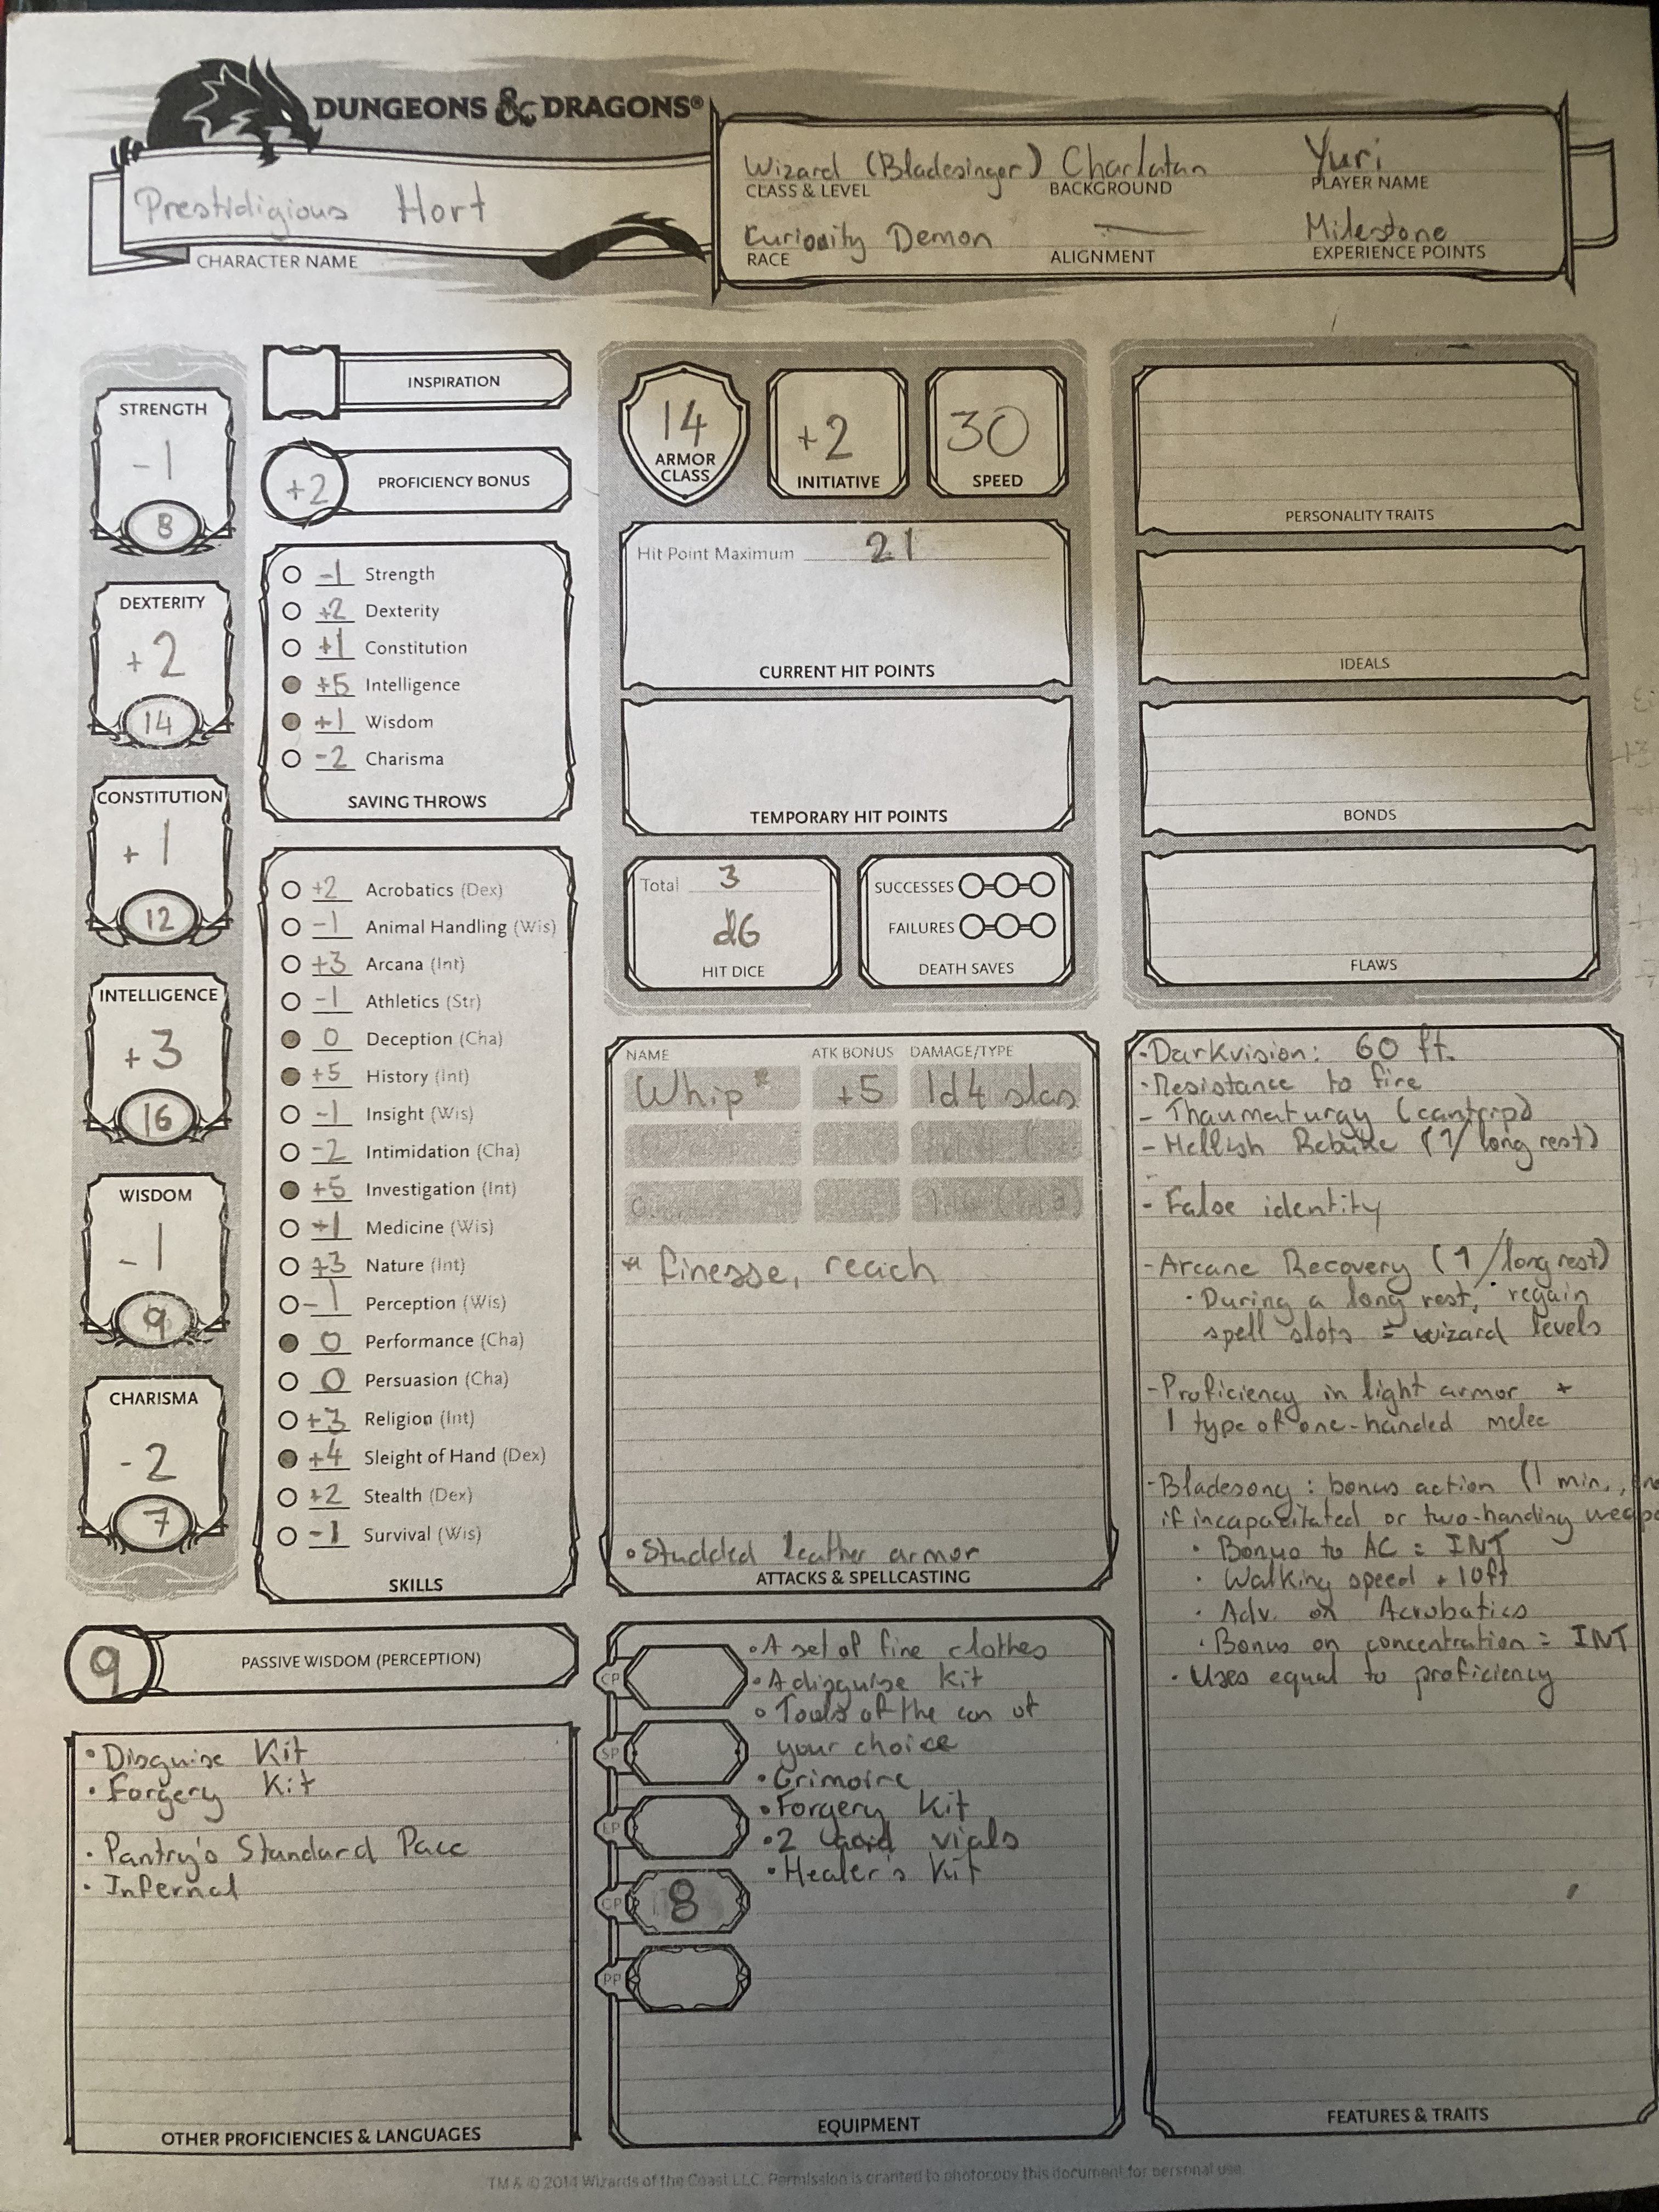 DUNGEONS & DRAGONS®
Prestidigious Hort
CHARACTER NAME
Wizard (Bladesinger) Charlatan Yuri
CLASS & LEVEL BACKGROUND PLAYER NAME
Curiosity Demon — Milestone
RACE ALIGNMENT EXPERIENCE POINTS
STRENGTH
-1
8
DEXTERITY
+2
14
CONSTITUTION
+1
12
INTELLIGENCE
+3
16
WISDOM
-1
9
CHARISMA
-2
7
INSPIRATION
+2 PROFICIENCY BONUS
-1 Strength
+2 Dexterity
+1 Constitution
+5 Intelligence
+1 Wisdom
-2 Charisma
SAVING THROWS
+2 Acrobatics (Dex)
-1 Animal Handling (Wis)
+3 Arcana (Int)
-1 Athletics (Str)
0 Deception (Cha)
+5 History (Int)
-1 Insight (Wis)
-2 Intimidation (Cha)
+5 Investigation (Int)
+1 Medicine (Wis)
+3 Nature (Int)
-1 Perception (Wis)
0 Performance (Cha)
0 Persuasion (Cha)
+3 Religion (Int)
+4 Sleight of Hand (Dex)
+2 Stealth (Dex)
-1 Survival (Wis)
SKILLS
9 PASSIVE WISDOM (PERCEPTION)
• Disguise Kit
• Forgery Kit
• Pantry's Standard Pacc
• Infernal
OTHER PROFICIENCIES & LANGUAGES
14
ARMOR
CLASS
+2
INITIATIVE
30
SPEED
Hit Point Maximum 21
CURRENT HIT POINTS
TEMPORARY HIT POINTS
Total 3
d6
HIT DICE
SUCCESSES
FAILURES
DEATH SAVES
NAME ATK BONUS DAMAGE/TYPE
Whip* +5 1d4 slas
* finesse, reach
• Studded leather armor
ATTACKS & SPELLCASTING
CP
SP
EP
GP 8
PP
• A set of fine clothes
• A disguise Kit
• Tools of the con of
your choice
• Grimoire
• Forgery Kit
• 2 vials
• Healer's Kit
EQUIPMENT
PERSONALITY TRAITS
IDEALS
BONDS
FLAWS
• Darkvision: 60 ft.
• Resistance to fire
- Thaumaturgy (cantrip)
- Hellish Rebuke (1/long rest)
-
- False identity
- Arcane Recovery (1/long rest)
• During a long rest, regain
spell slots = wizard levels
- Proficiency in light armor +
1 type of one-handed melee
- Bladesong: bonus action (1 min.,
if incapacitated or two-handing weapo
• Bonus to AC = INT
• Walking speed + 10ft
• Adv. on Acrobatics
• Bonus on concentration = INT
• Uses equal to proficiency
FEATURES & TRAITS
TM & © 2014 Wizards of the Coast LLC. Permission is granted to photocopy this document for personal use.